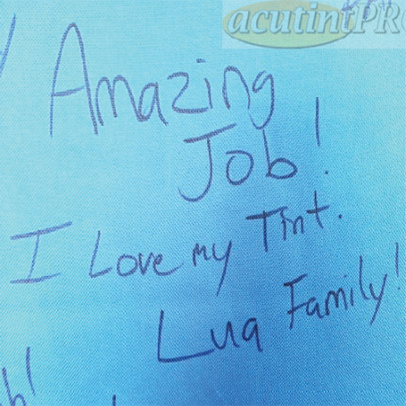 acutintPR
Amazing
Job!
I Love my Tint.
Lua Family!